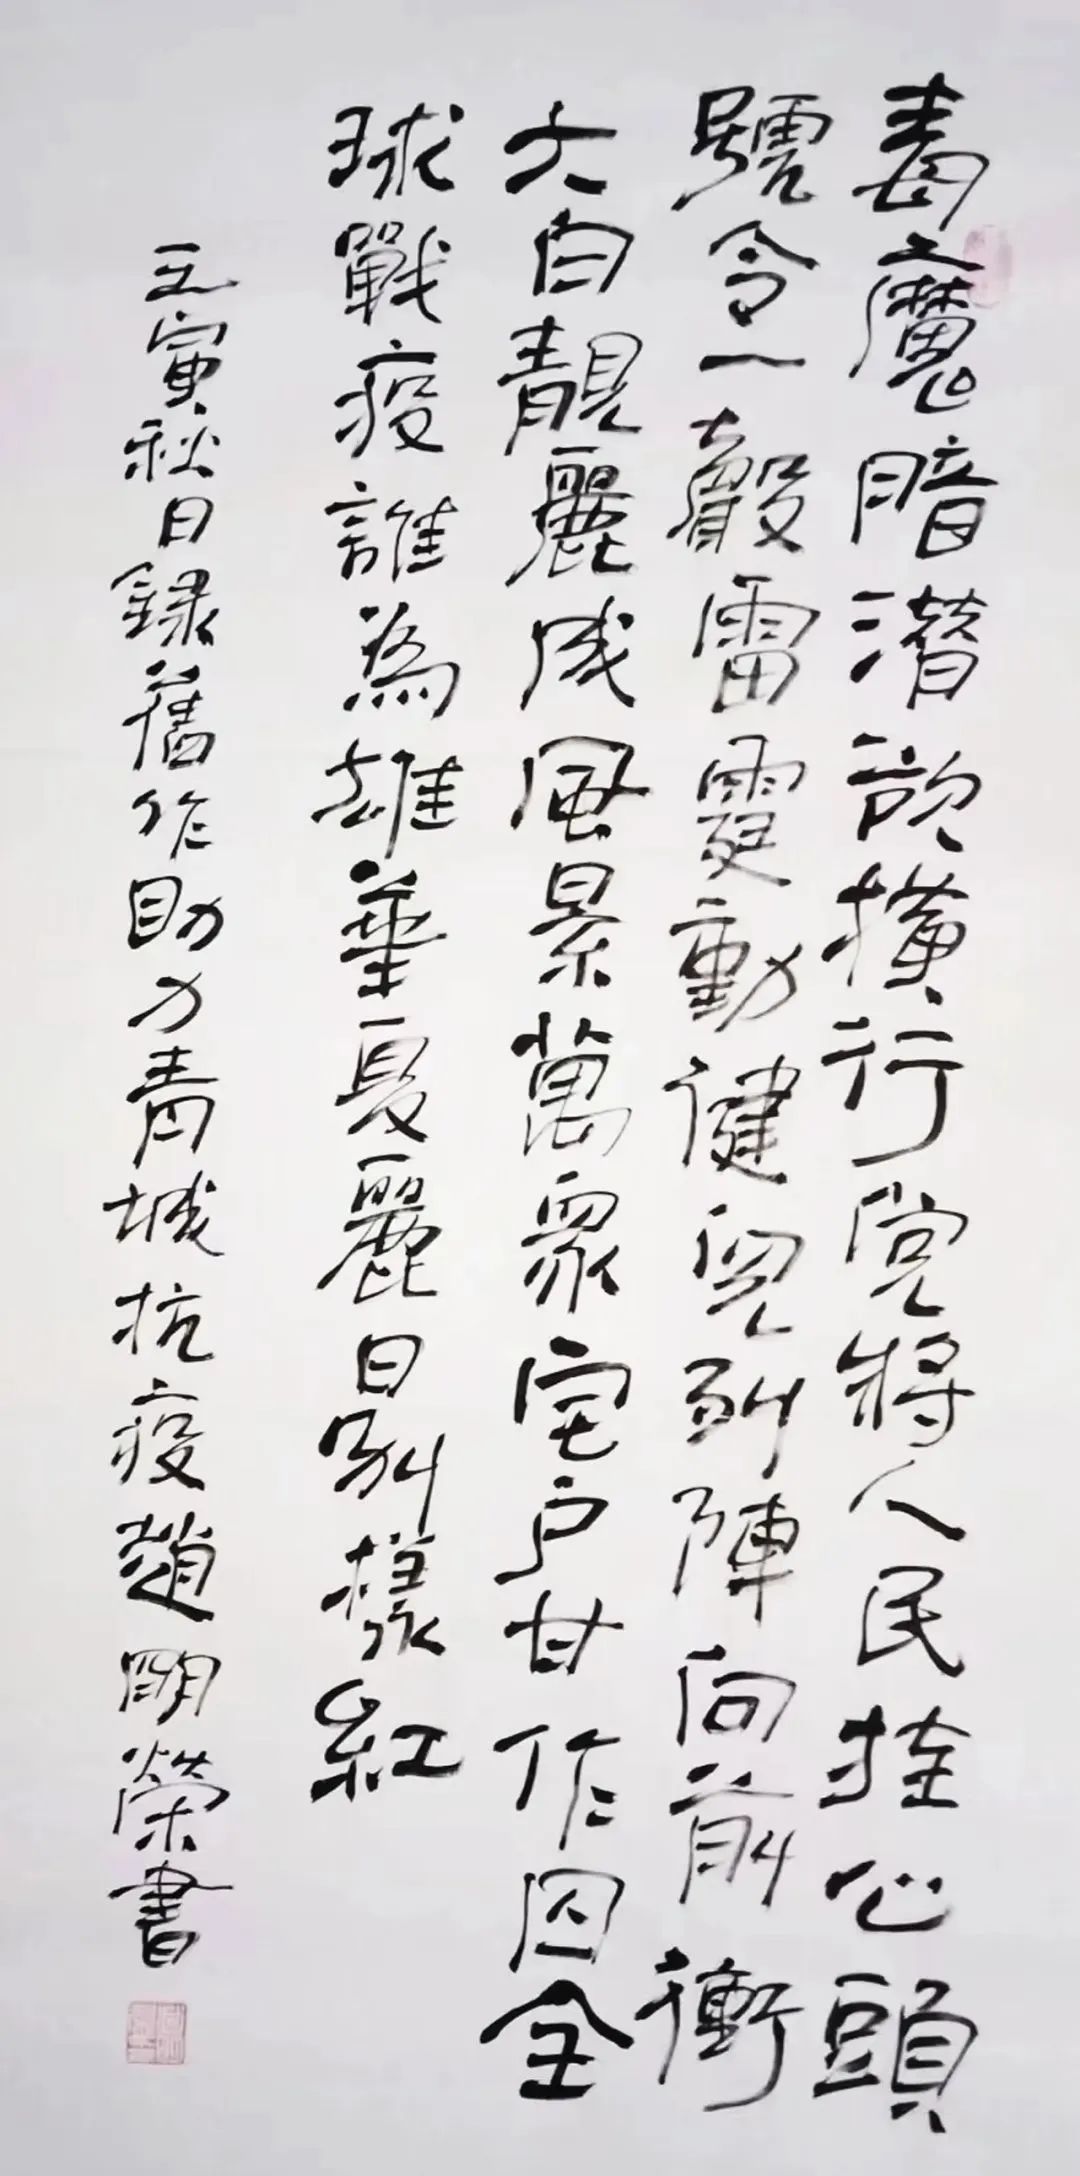 毒魔暗潜欲橫行党將人民挂心頭
號令一聲雷霆動健兒列陣向前衝
大白靚麗成風景萬眾宅户甘作囚全
球戰疫誰為雄華夏麗日别樣紅
壬寅秋日録舊作助力青城抗疫趙明榮書